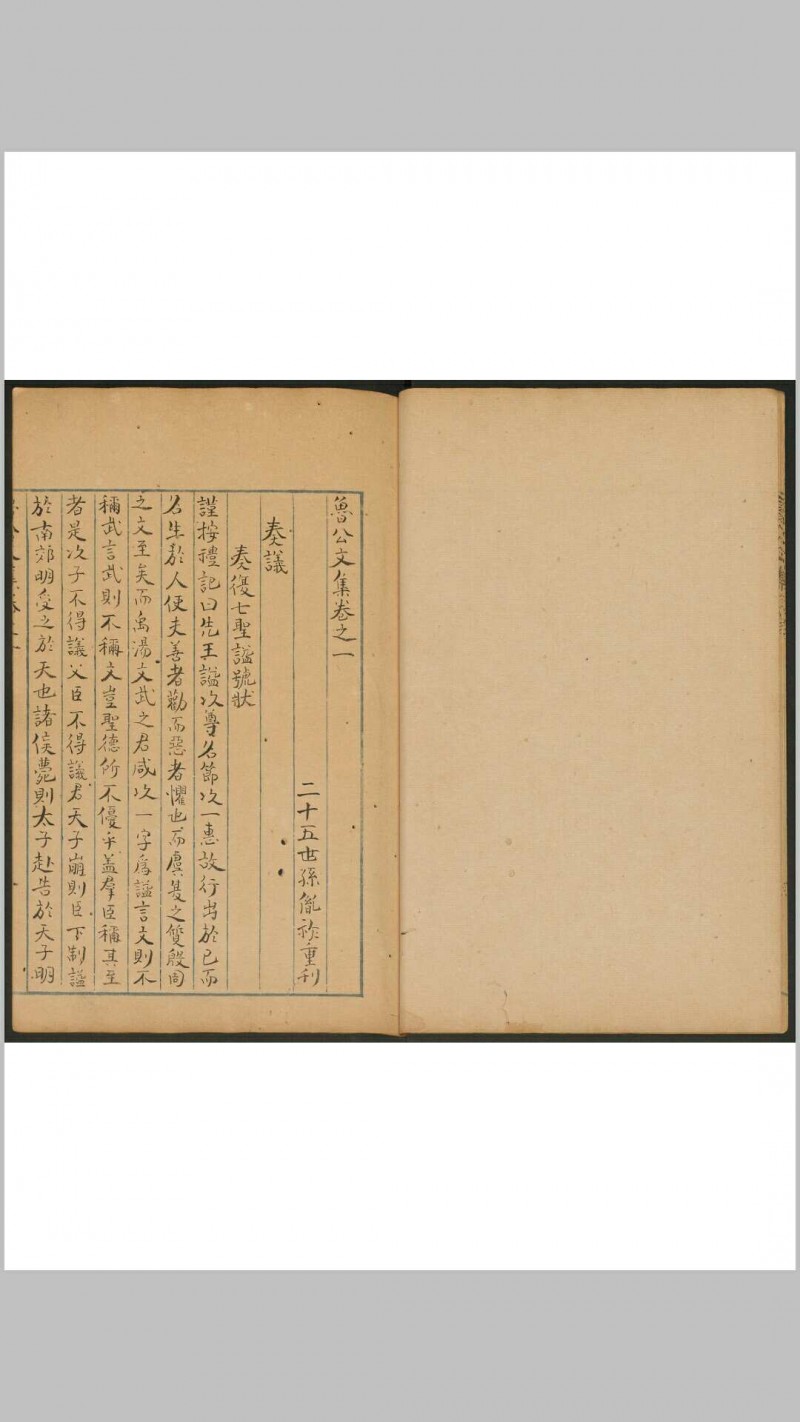 魯公文集卷之一
二十五世孫胤祚重刋
奏議
奏復七聖諡號狀
謹按禮記曰先王諡以尊名節以一惠故行出於己而
名生於人使夫善者勸而惡者懼也而虞夏之質殷周
之文至矣而禹湯文武之君咸以一字爲諡言文則不
稱武言武則不稱文豈聖德所不優乎盖羣臣稱其至
者是以子不得議父臣不得議君天子崩則臣下制諡
於南郊明受之於天也諸侯薨則太子赴告於天子明